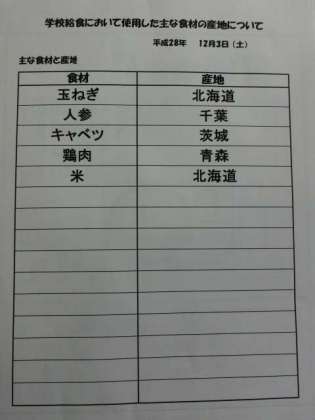 学校給食において使用した主な食材の産地について
平成28年 12月3日（土）
主な食材と産地
食材 産地
玉ねぎ 北海道
人参 千葉
キャベツ 茨城
鶏肉 青森
米 北海道